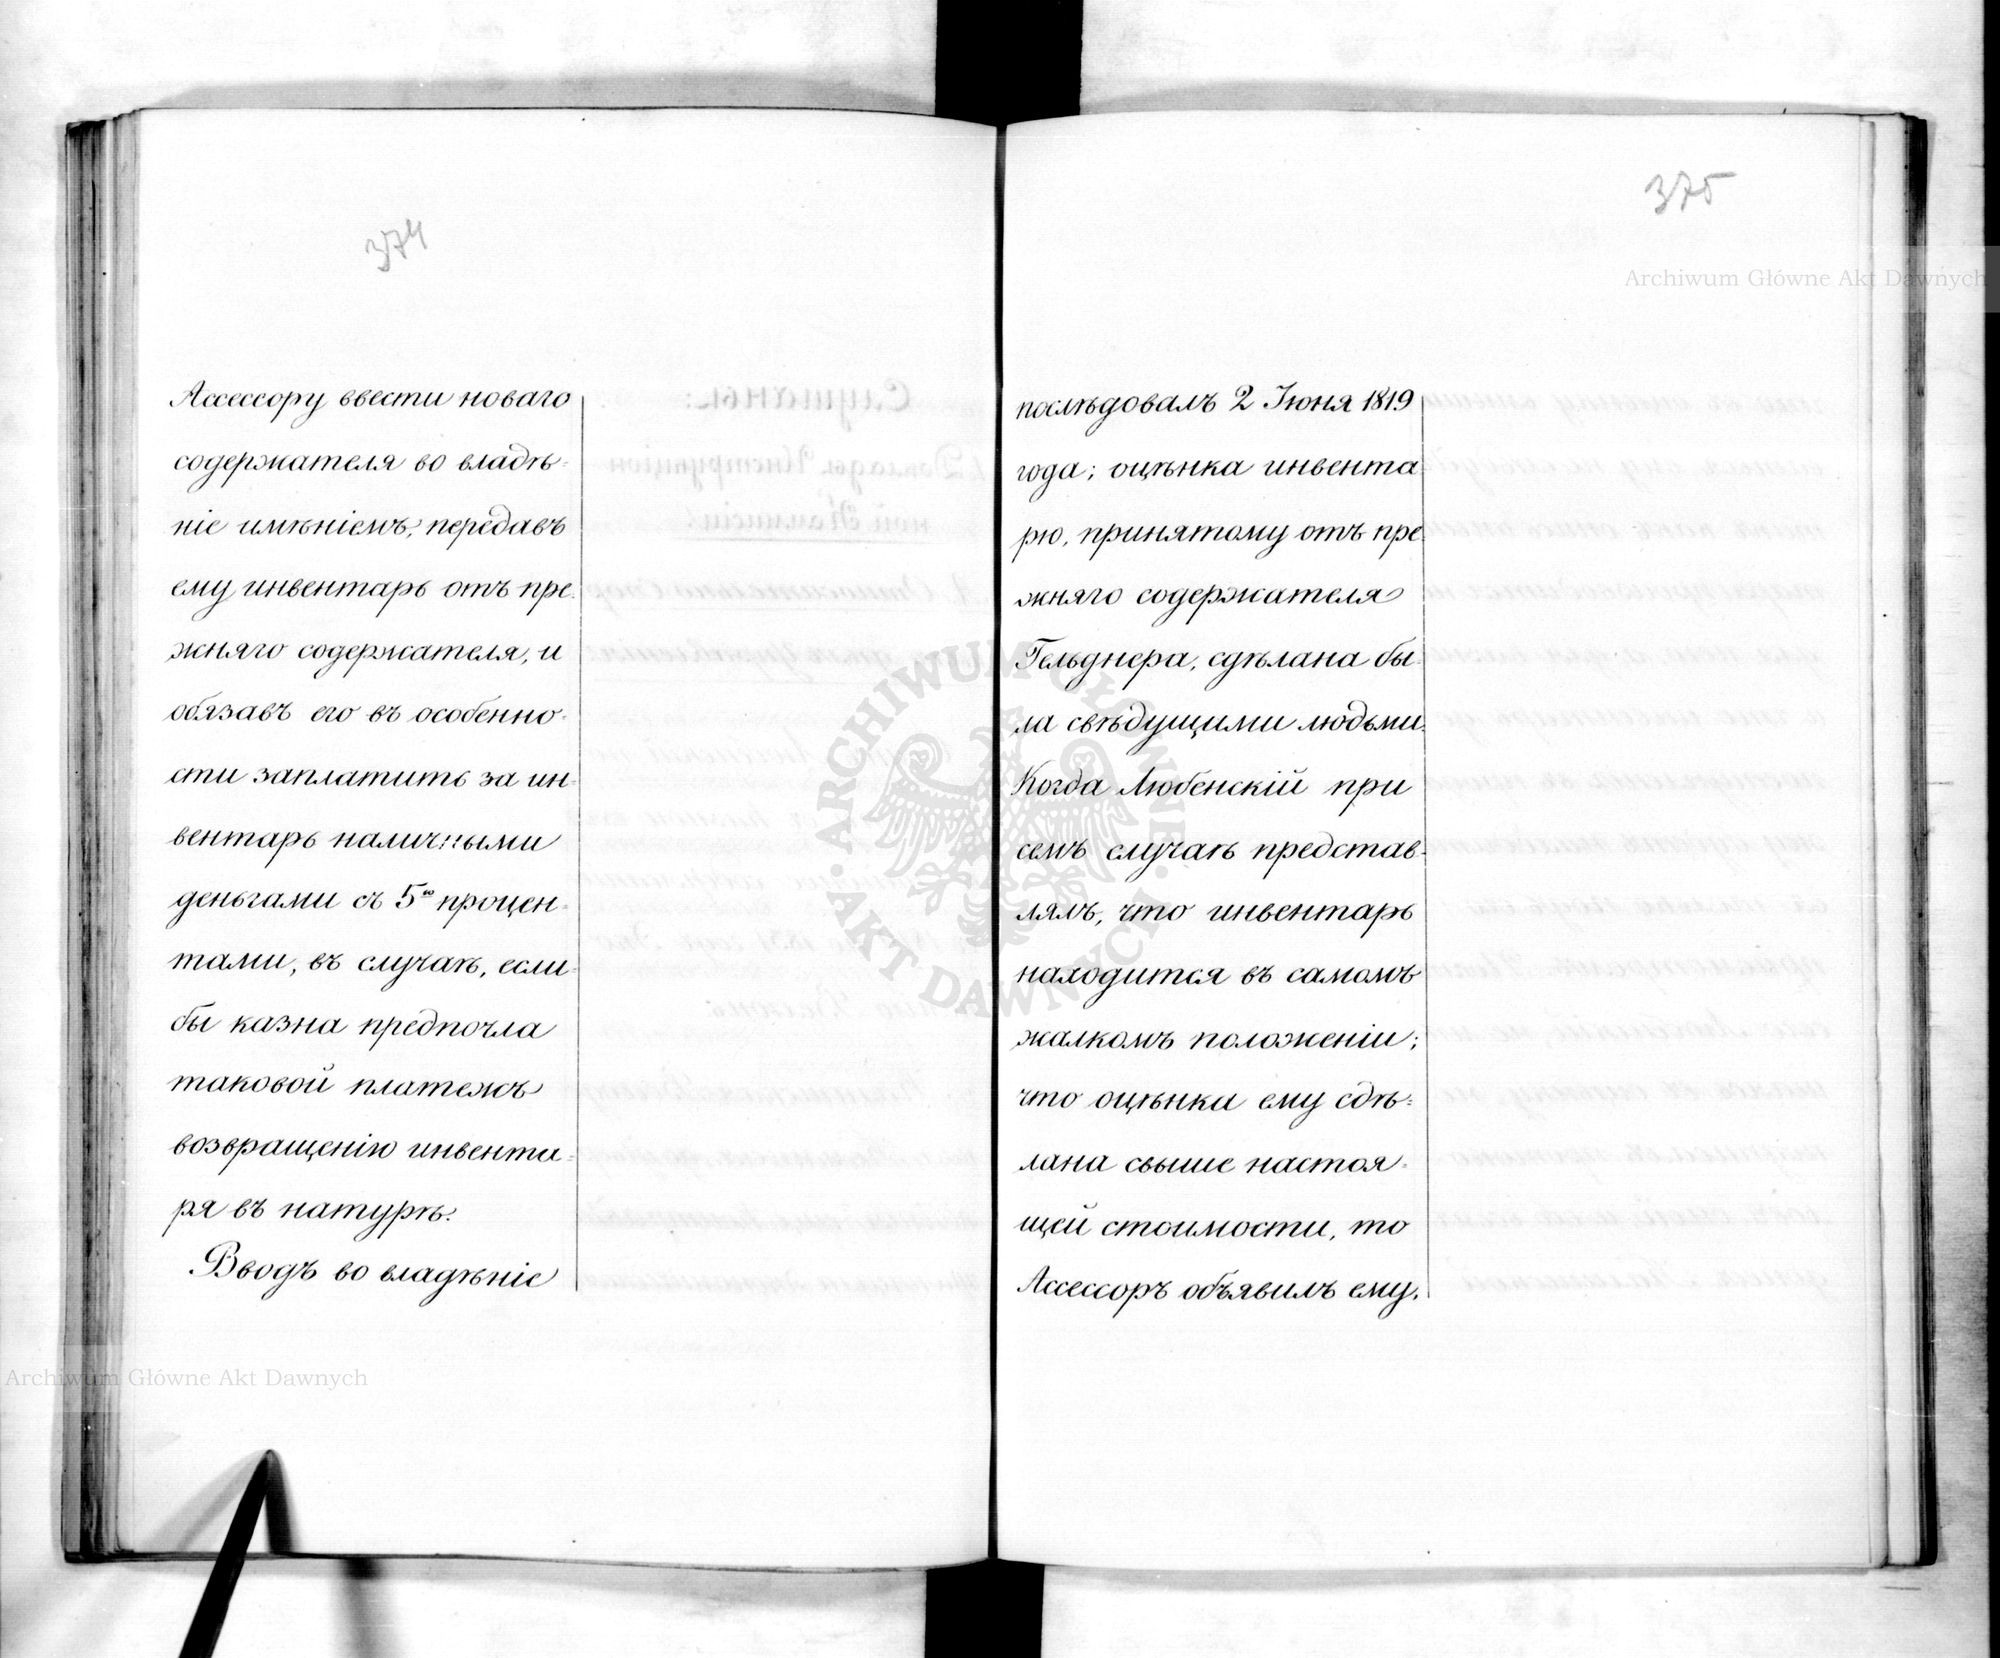 374
Ассессору ввести новаго
содержателя во владѣ-
ніе имѣніемъ, передавъ
ему инвентарь отъ пре-
жняго содержателя, и
обязавъ его въ особенно-
сти заплатить за ин-
вентарь наличными
деньгами съ 5ю процен-
тами, въ случаѣ, если-
бы казна предпочла
таковой платежъ
возвращенію инвента-
ря въ натурѣ.
Вводъ во владѣніе
375
послѣдовалъ 2 Іюня 1819
года; оцѣнка инвента
рю, принятому отъ пре
жняго содержателя
Гельднера, сдѣлана бы-
ла свѣдущими людьми.
Когда Любенскій при
семъ случаѣ представ-
лялъ, что инвентарь
находится въ самомъ
жалкомъ положеніи;
что оцѣнка ему сдѣ-
лана свыше настоя-
щей стоимости, то
Ассессоръ объявилъ ему,
Archiwum Główne Akt Dawnych
Archiwum Główne Akt Dawnych
ARCHIWUM GŁÓWNE AKT DAWNYCH